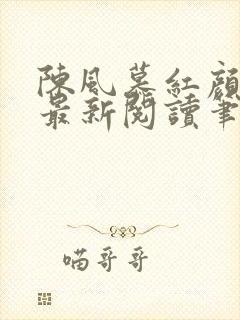 陳風慕紅顏
最新閱讀筆
喵哥哥